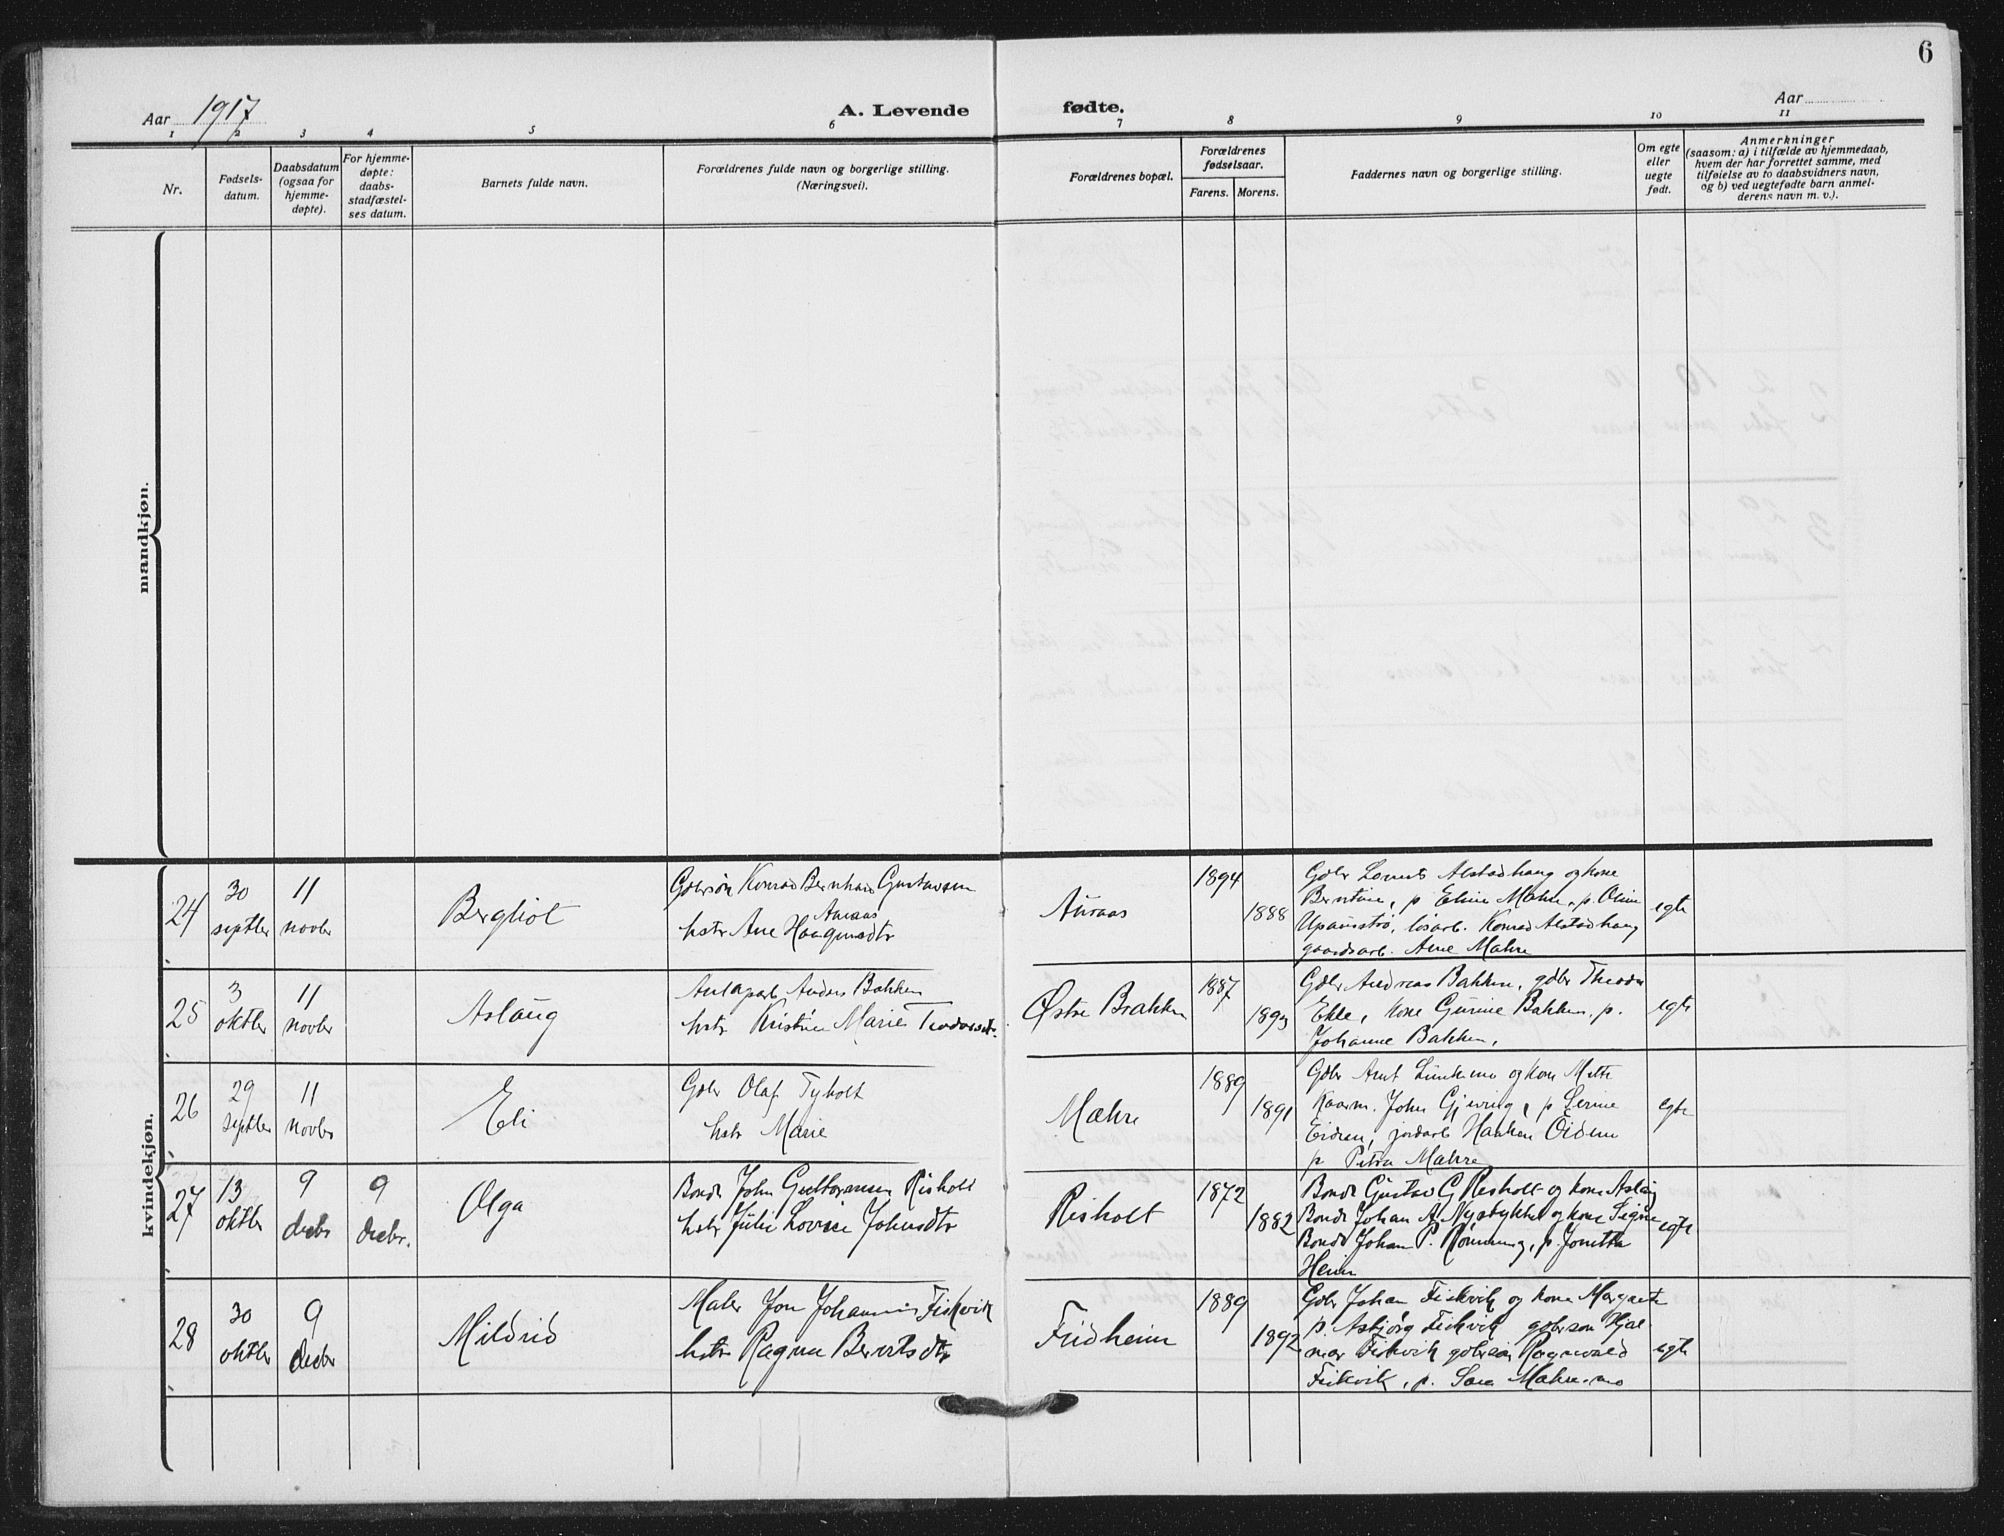 6
Aar 1917
A. Levende fødte.
Aar
1 2 3 4 5 6 7 8 9 10 11
Nr.
Fødsels-
datum.
Daabsdatum
(ogsaa for
hjemme-
døpte).
For hjemme-
døpte:
daabs-
stadfæstel-
ses datum.
Barnets fulde navn.
Forældrenes fulde navn og borgerlige stilling.
(Næringsvei).
Forældrenes bopæl.
Forældrenes
fødselsaar.
Farens. Morens.
Faddernes navn og borgerlige stilling.
Om egte
eller
uegte
født.
Anmerkninger
(saasom: a) i tilfælde av hjemmedaab,
hvem der har forrettet samme, med
tilføielse av to daabsvidners navn,
og b) ved uegtefødte barn anmel-
derens navn m. v.).
mandkjøn.
kvindekjøn.
24
30
septbr
11
novbr
Bergliot
Gbrsøn Konrad Bernhard Gustavsen
Auraas
hstr Ane Haagensdtr
Auraas
1894
1888
Gbr Alstadhaug og kone
Berntine, p. Eline Mæhre, p. Oline
løsarb. Konrad Alstadhaug
gaardsarb. Arne Mæhre
egte
25
3
oktbr
11
novbr
Aslaug
Anders Bakken
hstr Kristine Marie
Østre Brækken
1887
1893
Gbr Andreas Bakken, gbr Theodor
Ekle, kone Gurine Bakken, p.
Johanne Bakken.
egte
26
29
septbr
11
novbr
Eli
Gbr Olaf Tyholt
hstr Marie
Mæhre
1889
1891
Gbr Arnt og kone Mette
John p
jordarb Haakon
p Petra Mæhre
egte
27
13
oktbr
9
decbr
9
decbr.
Olga
Bonde John Guttormsen Risholt
hstr Julie Lovise Johnsdtr
Risholt
1872
1882
Bonde Gustav G Risholt og kone Aslaug
Bonde Johan A. og kone Signe
Bonde Johan P. Rønning, p. Jonetta
Heim
egte
28
30
oktbr
9
decbr
Mildrid
Maler Jon Johannes Fiskvik
hstr Ragna Berntsdtr
Fridheim
1889
1892
Gbr Johan Fiskvik og kone Margrete
p. Asbjørg Fiskvik gbrsøn Hjal-
mar Fiskvik gbrsøn Ragnvald
Fiskvik, p. Sara Mæhre
egte